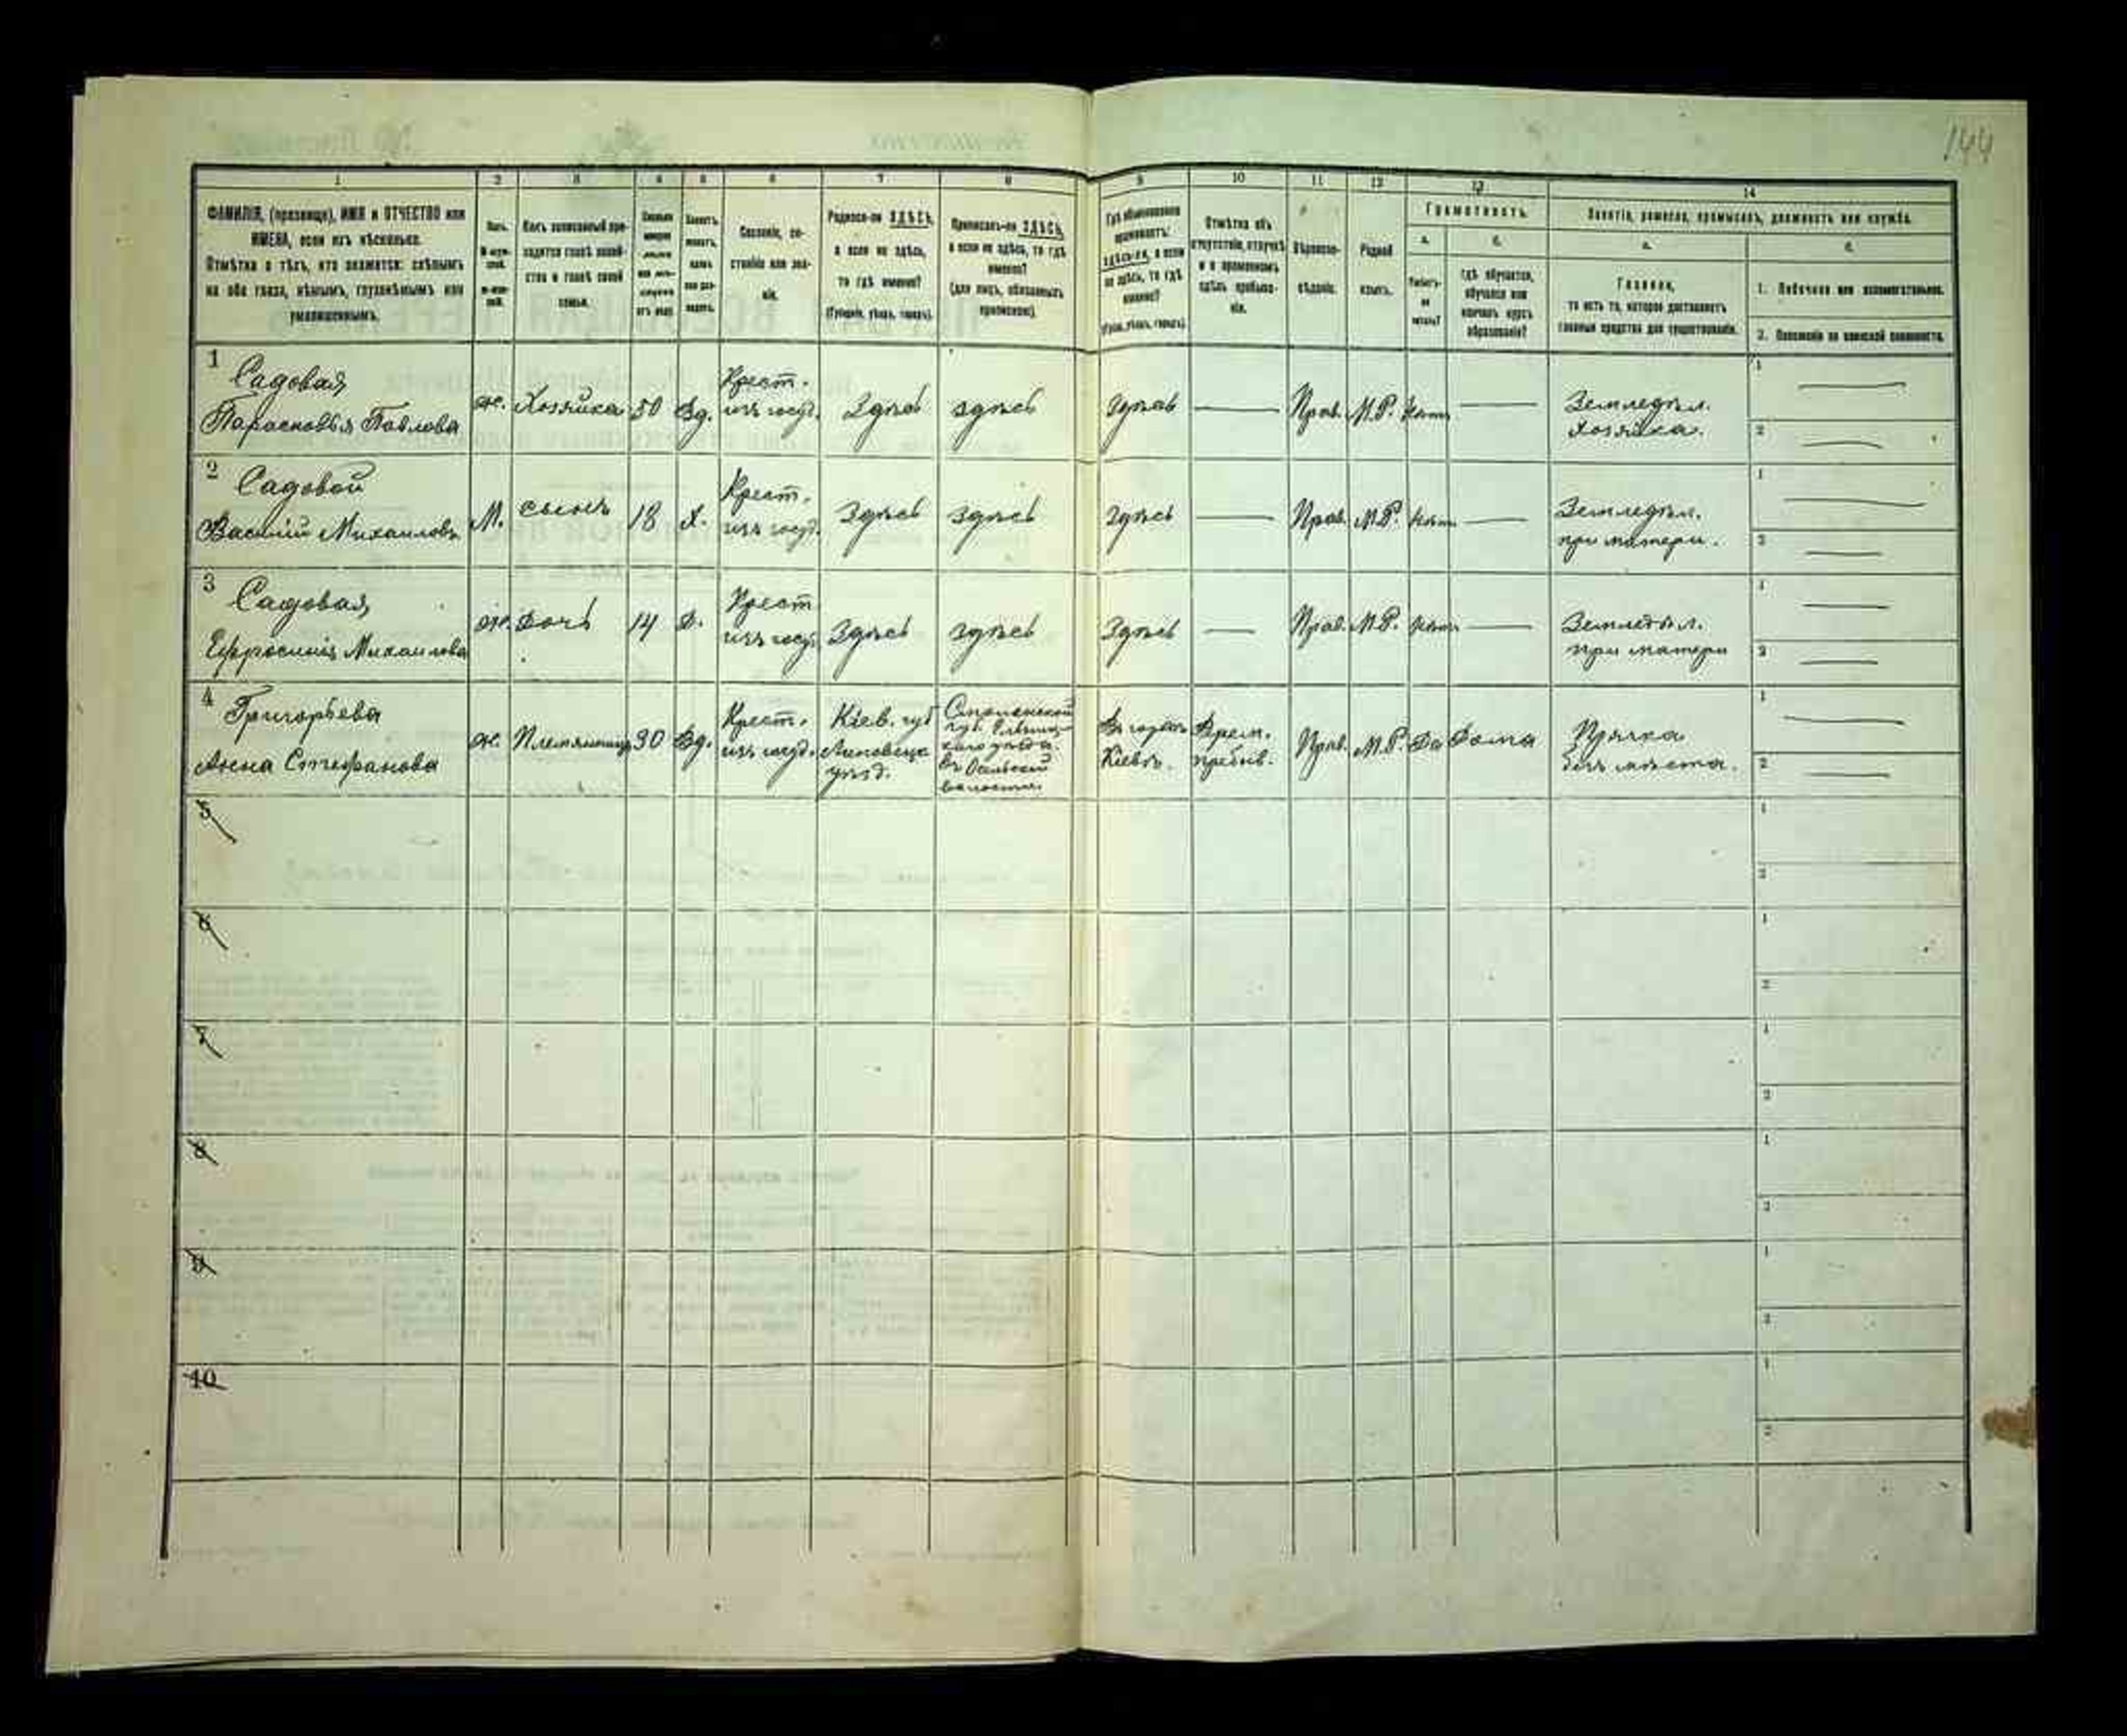 144
1 2 3 4 5 6 7 8 9 10 11 12 13 14
ФАМИЛІЯ, (прозвище), ИМЯ и ОТЧЕСТВО или
ИМЕНА, если ихъ нѣсколько.
Отмѣтка о тѣхъ, кто окажется: слѣпымъ
на оба глаза, нѣмымъ, глухонѣмымъ или
умалишеннымъ.
Полъ.
Какъ записанный при-
ходится главѣ хозяй-
ства и главѣ своей
семьи.
Сословіе, со-
стояніе или зва-
ніе.
Родился-ли ЗДѢСЬ,
а если не здѣсь,
то гдѣ именно?
(Губернія, уѣздъ, городъ).
Приписанъ-ли ЗДѢСЬ,
а если не здѣсь, то гдѣ
именно?
(для лицъ, обязанныхъ
припискою).
Гдѣ обыкновенно
проживаетъ:
здѣсь-ли, а если
не здѣсь, то гдѣ
именно?
(Губ., уѣздъ, городъ).
Отмѣтка объ
отсутствіи, отлучкѣ
и о временномъ
здѣсь пребыва-
ніи.
Вѣроиспо-
вѣданіе.
Родной
языкъ.
Грамотность.
а.
Умѣетъ-
ли
читать?
б.
гдѣ обучается,
обучался или
кончилъ курсъ
образованія?
Занятіе, ремесло, промыселъ, должность или служба.
а.
Главное,
то есть то, которое доставляетъ
главныя средства для существованія.
б.
1. Побочное или вспомогательное.
2. Положеніе по воинской повинности.
1
Садовая
Парасковья Павлова
ж. Хозяйка 50 вд.
Крест.
изъ госуд.
Здѣсь здѣсь здѣсь — Прав. М.Р. нѣтъ —
Земледѣл.
хозяйка.
1 —
2 —
2
Садовой
Василій Михаиловъ
М. сынъ 18 х.
Крест.
изъ госуд.
Здѣсь здѣсь здѣсь — Прав. М.Р. нѣтъ —
Земледѣл.
при матери.
1 —
2 —
3
Садовая
Ефросинія Михаилова
ж. дочь 14 д.
Крест
изъ госуд.
Здѣсь здѣсь здѣсь — Прав. М.Р. нѣтъ —
Земледѣл.
при матери
1 —
2 —
4
Григорьева
Анна Стефанова
ж. Племянница 30 вд.
Крест.
изъ госуд.
Кіев. губ
Липовецк
уѣзд.
Смоленской
губ. Ельнин-
скаго уѣзда.
волости.
Въ городѣ
Кіевѣ.
Врем.
пребыв.
Прав. М.Р. Да Дома
Прачка
безъ мѣста.
1 —
2 —
5
1
2
6
1
2
7
1
2
8
1
2
9
1
2
10
1
2